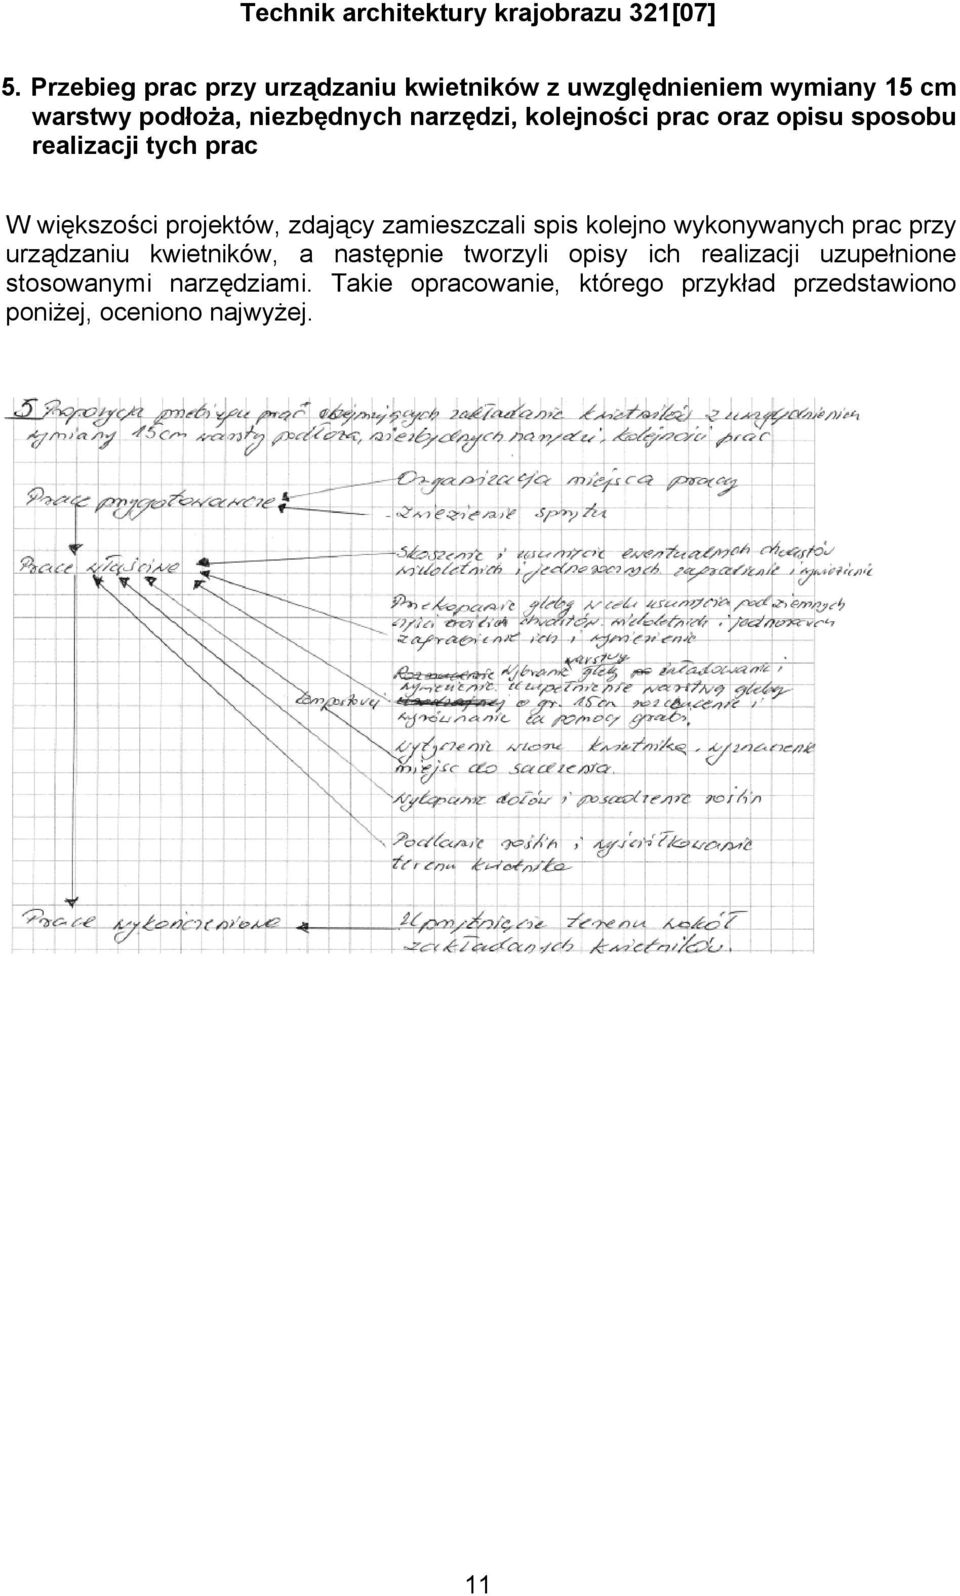 Technik architektury krajobrazu 321[07]
5. Przebieg prac przy urządzaniu kwietników z uwzględnieniem wymiany 15 cm
warstwy podłoża, niezbędnych narzędzi, kolejności prac oraz opisu sposobu
realizacji tych prac
W większości projektów, zdający zamieszczali spis kolejno wykonywanych prac przy
urządzaniu kwietników, a następnie tworzyli opisy ich realizacji uzupełnione
stosowanymi narzędziami. Takie opracowanie, którego przykład przedstawiono
poniżej, oceniono najwyżej.
5 Propozycja przebiegu prac obejmujących zakładanie kwietników z uwzględnieniem
wymiany 15cm warstwy podłoża, niezbędnych narzędzi, kolejności prac
Organizacja miejsca pracy
Prace przygotowawcze
- zwiezienie sprzętu
Skoszenie i usunięcie ewentualnych chwastów
Prace właściwe
wieloletnich i jednorocznych, zagrabienie i wywiezienie
Przekopanie gleby w celu usunięcia podziemnych
części chwastów wieloletnich i jednorocznych
zagrabienie ich i wywiezienie
warstwy
Wybranie gleby załadowanie i
wywiezienie. Uzupełnienie warstwą gleby
kompostowej o gr. 15cm rozrzucenie i
wyrównanie za pomocą grabi.
wytyczenie kwietnika, wyznaczenie
miejsc do sadzenia.
Wykopanie dołów i posadzenie roślin
Podlanie roślin i wyściółkowanie
terenu kwietnika
Prace wykończeniowe
Uprzątnięcie terenu wokół
zakładanych kwietników.
11